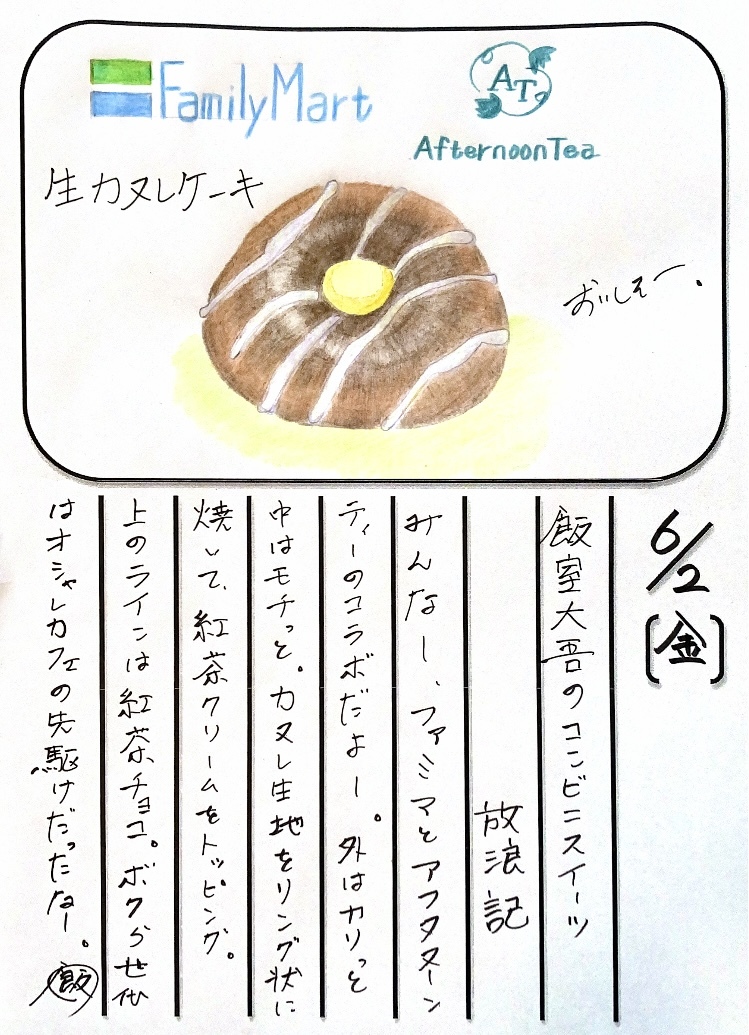 FamilyMart
AT
AfternoonTea
生カヌレケーキ
おいしそー。
6/2(金)
飯室大吾のコンビニスイーツ
放浪記
みんなー、ファミマとアフタヌーン
ティーのコラボだよー。外はカリっと
中はモチっと。カヌレ生地をリング状に
焼いて、紅茶クリームをトッピング。
上のラインは紅茶チョコ。ボクら世代
はオシャレカフェの先駆けだったなー。
飯